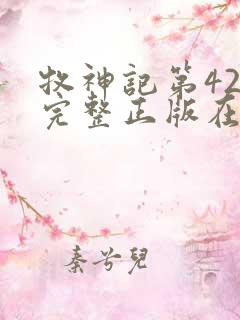 牧神記第42
完整正版在
秦兮兒